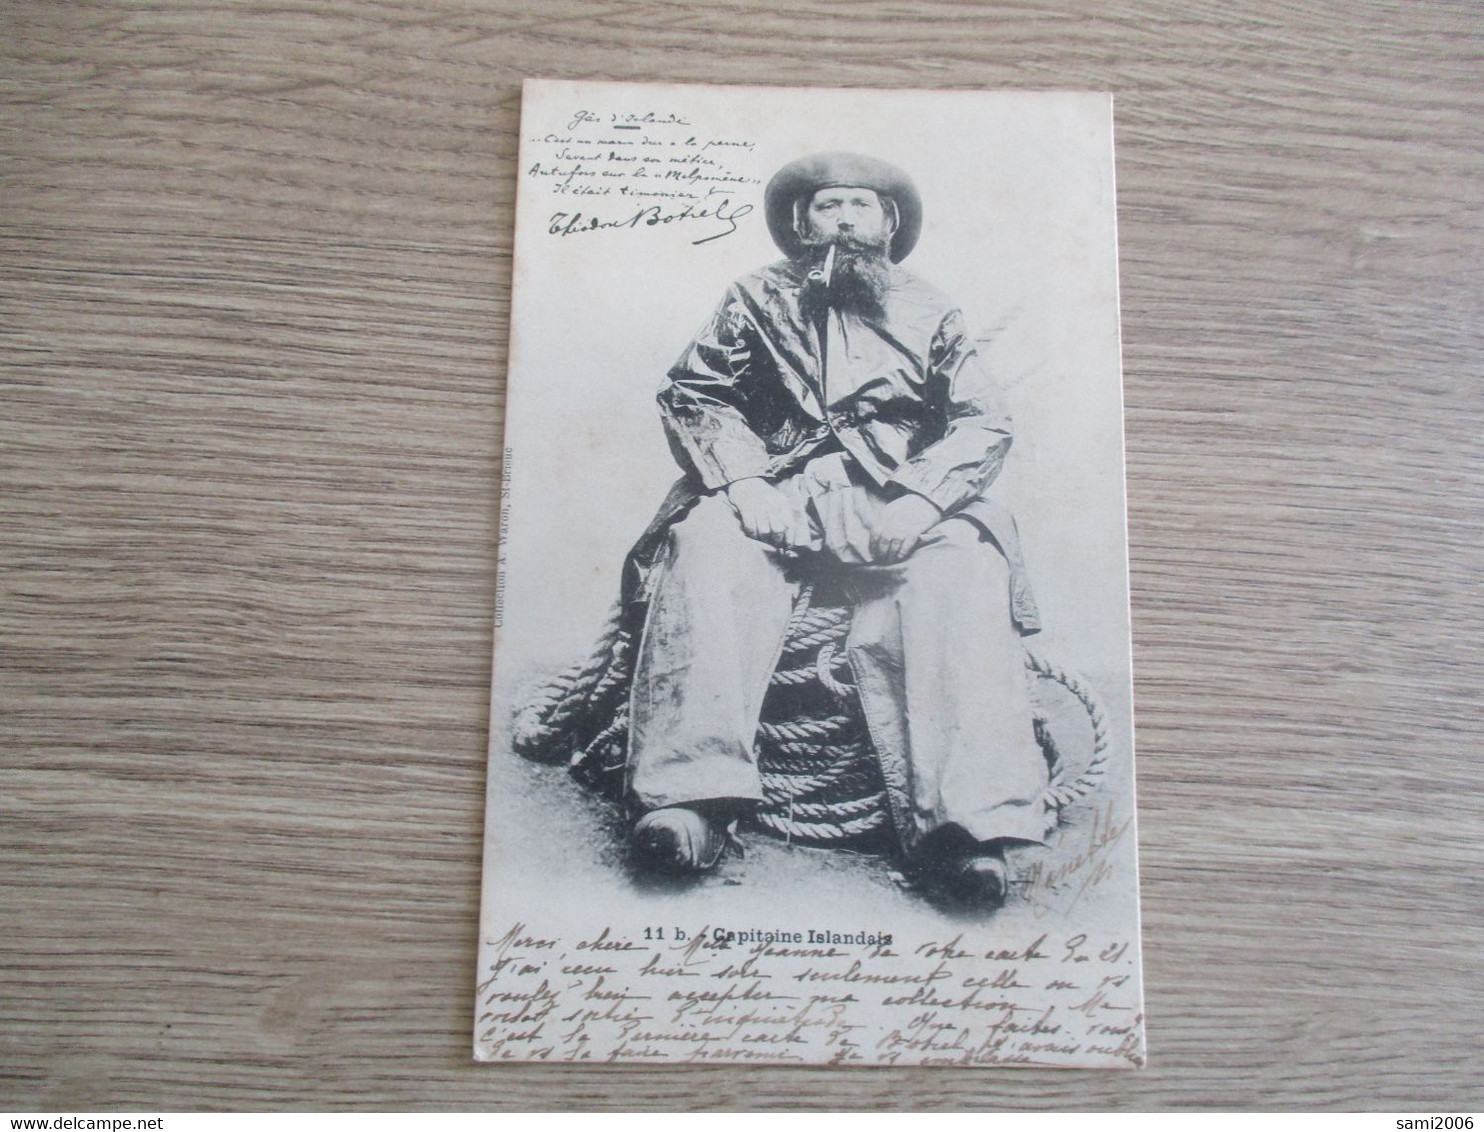 Gâs d'Islande
"C'est un marin dur à la peine,
Savant dans son métier,
Autrefois sur la "Melpomène"
Il était timonier !
Théodore Botrel
Collection A. Waron, St-Brieuc
11 b. - Capitaine Islandais
Merci, chère Mlle Jeanne de votre carte du 21.
J'ai reçu hier soir seulement celle où vs
voulez bien accepter ma collection. Me
voilà sortie d'inquiétude. Que faites-vous ?
c'est la dernière carte de Botrel, j'avais oublié
de vs la faire parvenir. Je vs embrasse
sami2006